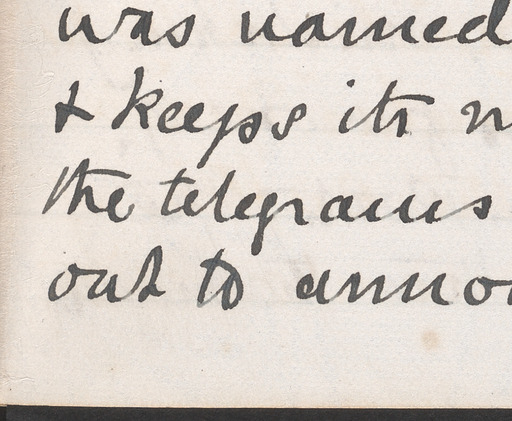 was named
& keeps its
the telegrams
out to